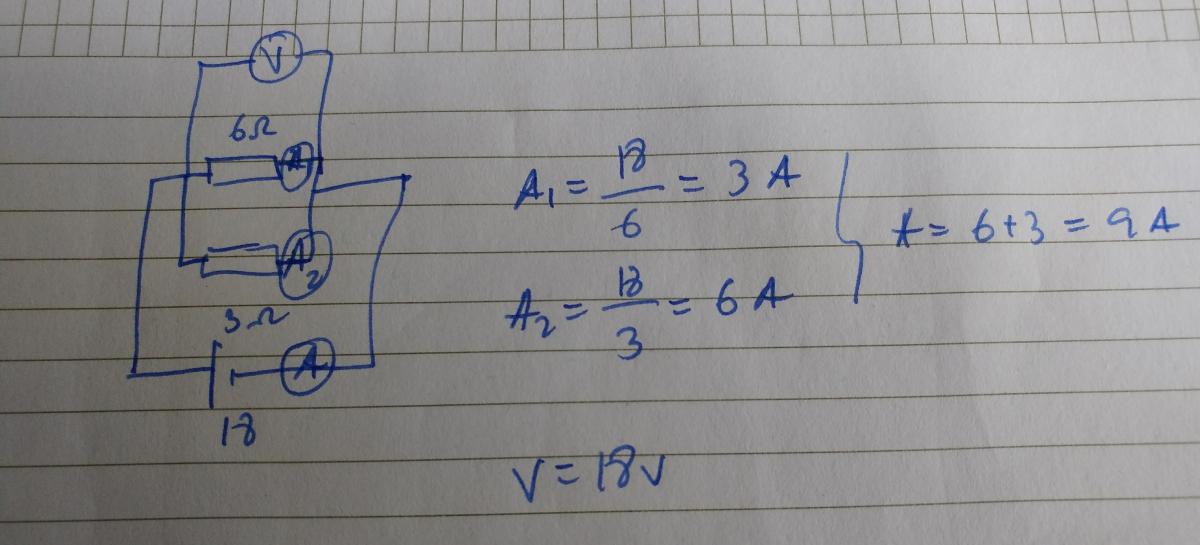 V
6Ω
A
A2
3Ω
A
18
A1 = 18/6 = 3 A
A2 = 18/3 = 6 A
A = 6+3 = 9 A
V = 18V